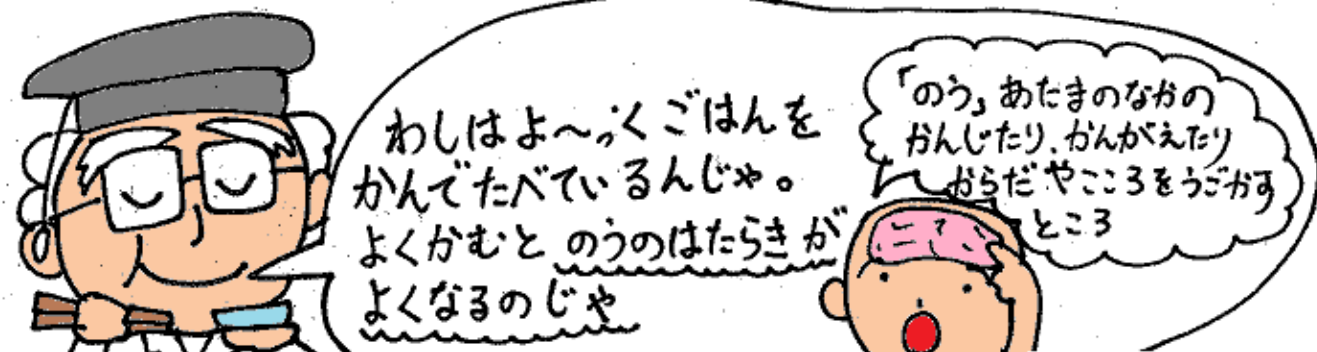 わしはよ〜っくごはんを
かんでたべているんじゃ。
よくかむと のうのはたらきが
よくなるのじゃ
「のう」あたまのなかの
かんじたり、かんがえたり
からだやこころをうごかす
ところ